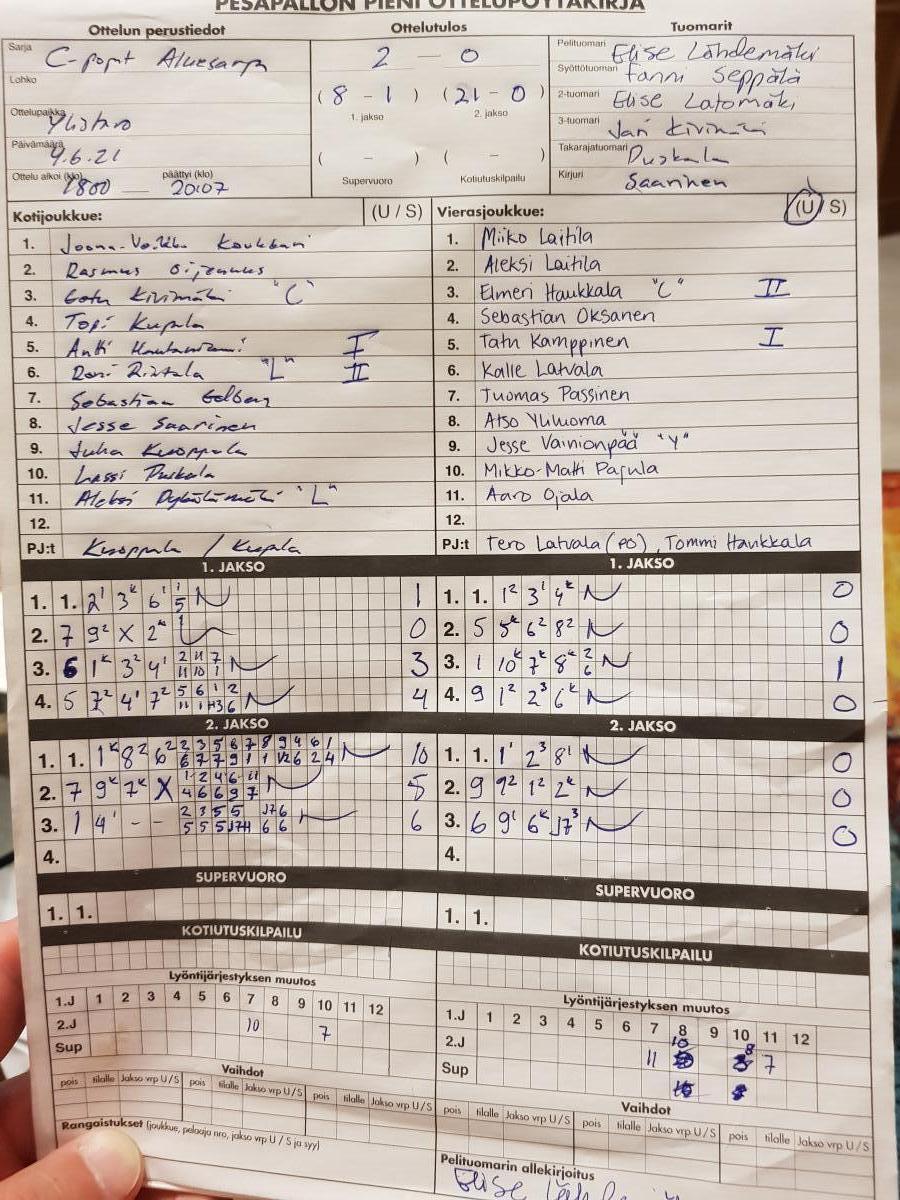 PESÄPALLON PIENI OTTELUPÖYTÄKIRJA
Ottelun perustiedot
Sarja C-pojat Aluesarja
Lohko
Ottelupaikka Ylistaro
Päivämäärä 4.6.21
Ottelu alkoi (klo) 1800 — päättyi (klo) 20:07
Ottelutulos
2 — 0
( 8 - 1 ) ( 21 - 0 )
1. jakso 2. jakso
( - ) ( - )
Supervuoro Kotiutuskilpailu
Tuomarit
Pelituomari Elise Lähdemäki
Syöttötuomari Fanni Seppälä
2-tuomari Elise Latomäki
3-tuomari Jari Kivimäki
Takarajatuomari Puskala
Kirjuri Saarinen
Kotijoukkue: (U / S)
1. Joona-Veikko
2. Rasmus
3. Eetu Kivimäki "C"
4. Topi Kupala
5. Antti I
6. Roni Rintala "L" II
7. Sebastian
8. Jesse Saarinen
9. Juha Kuoppala
10. Lassi Puskala
11. Aleksi "L"
12.
PJ:t Kuoppala / Kupala
Vierasjoukkue: (U / S)
1. Miiko Laitila
2. Aleksi Laitila
3. Elmeri Haukkala "C" II
4. Sebastian Oksanen
5. Tatu Kamppinen I
6. Kalle Latvala
7. Tuomas Passinen
8. Atso Yliluoma
9. Jesse Vainionpää "Y"
10. Mikko-Matti Papula
11. Aaro Ojala
12.
PJ:t Tero Latvala (PO), Tommi Haukkala
1. JAKSO
1. 1. 2¹ 3ᵏ 6¹ 1
2. 7 9² X 2ᵏ 0
3. 6 1ᵏ 3² 4¹ 3
4. 5 7² 4¹ 7² 4
1. JAKSO
1. 1. 1² 3¹ 4ᵏ 0
2. 5 5ᵏ 6² 8² 0
3. 1 10ᵏ 7ᵏ 8ᵏ 2 6 1
4. 9 1² 2³ 6ᵏ 0
2. JAKSO
1. 1. 1ᵏ 8² 6² 10
2. 7 9ᵏ 7ᵏ X 5
3. 1 4¹ - - 6
4.
2. JAKSO
1. 1. 1¹ 2³ 8¹ 0
2. 9 9² 1² 2ᵏ 0
3. 6 9¹ 6ᵏ J7³ 0
4.
SUPERVUORO
1. 1.
SUPERVUORO
1. 1.
KOTIUTUSKILPAILU
KOTIUTUSKILPAILU
Lyöntijärjestyksen muutos
1.J 1 2 3 4 5 6 7 8 9 10 11 12
2.J 10 7
Sup
Lyöntijärjestyksen muutos
1.J 1 2 3 4 5 6 7 8 9 10 11 12
2.J 11 10 8 7
Sup
Vaihdot
pois tilalle Jakso vrp U/S pois tilalle Jakso vrp U/S pois tilalle Jakso vrp U/S
Vaihdot
pois tilalle Jakso vrp U/S pois tilalle Jakso vrp U/S pois tilalle Jakso vrp U/S
Rangaistukset (joukkue, pelaaja nro, jakso vrp U / S ja syy)
Pelituomarin allekirjoitus
Elise